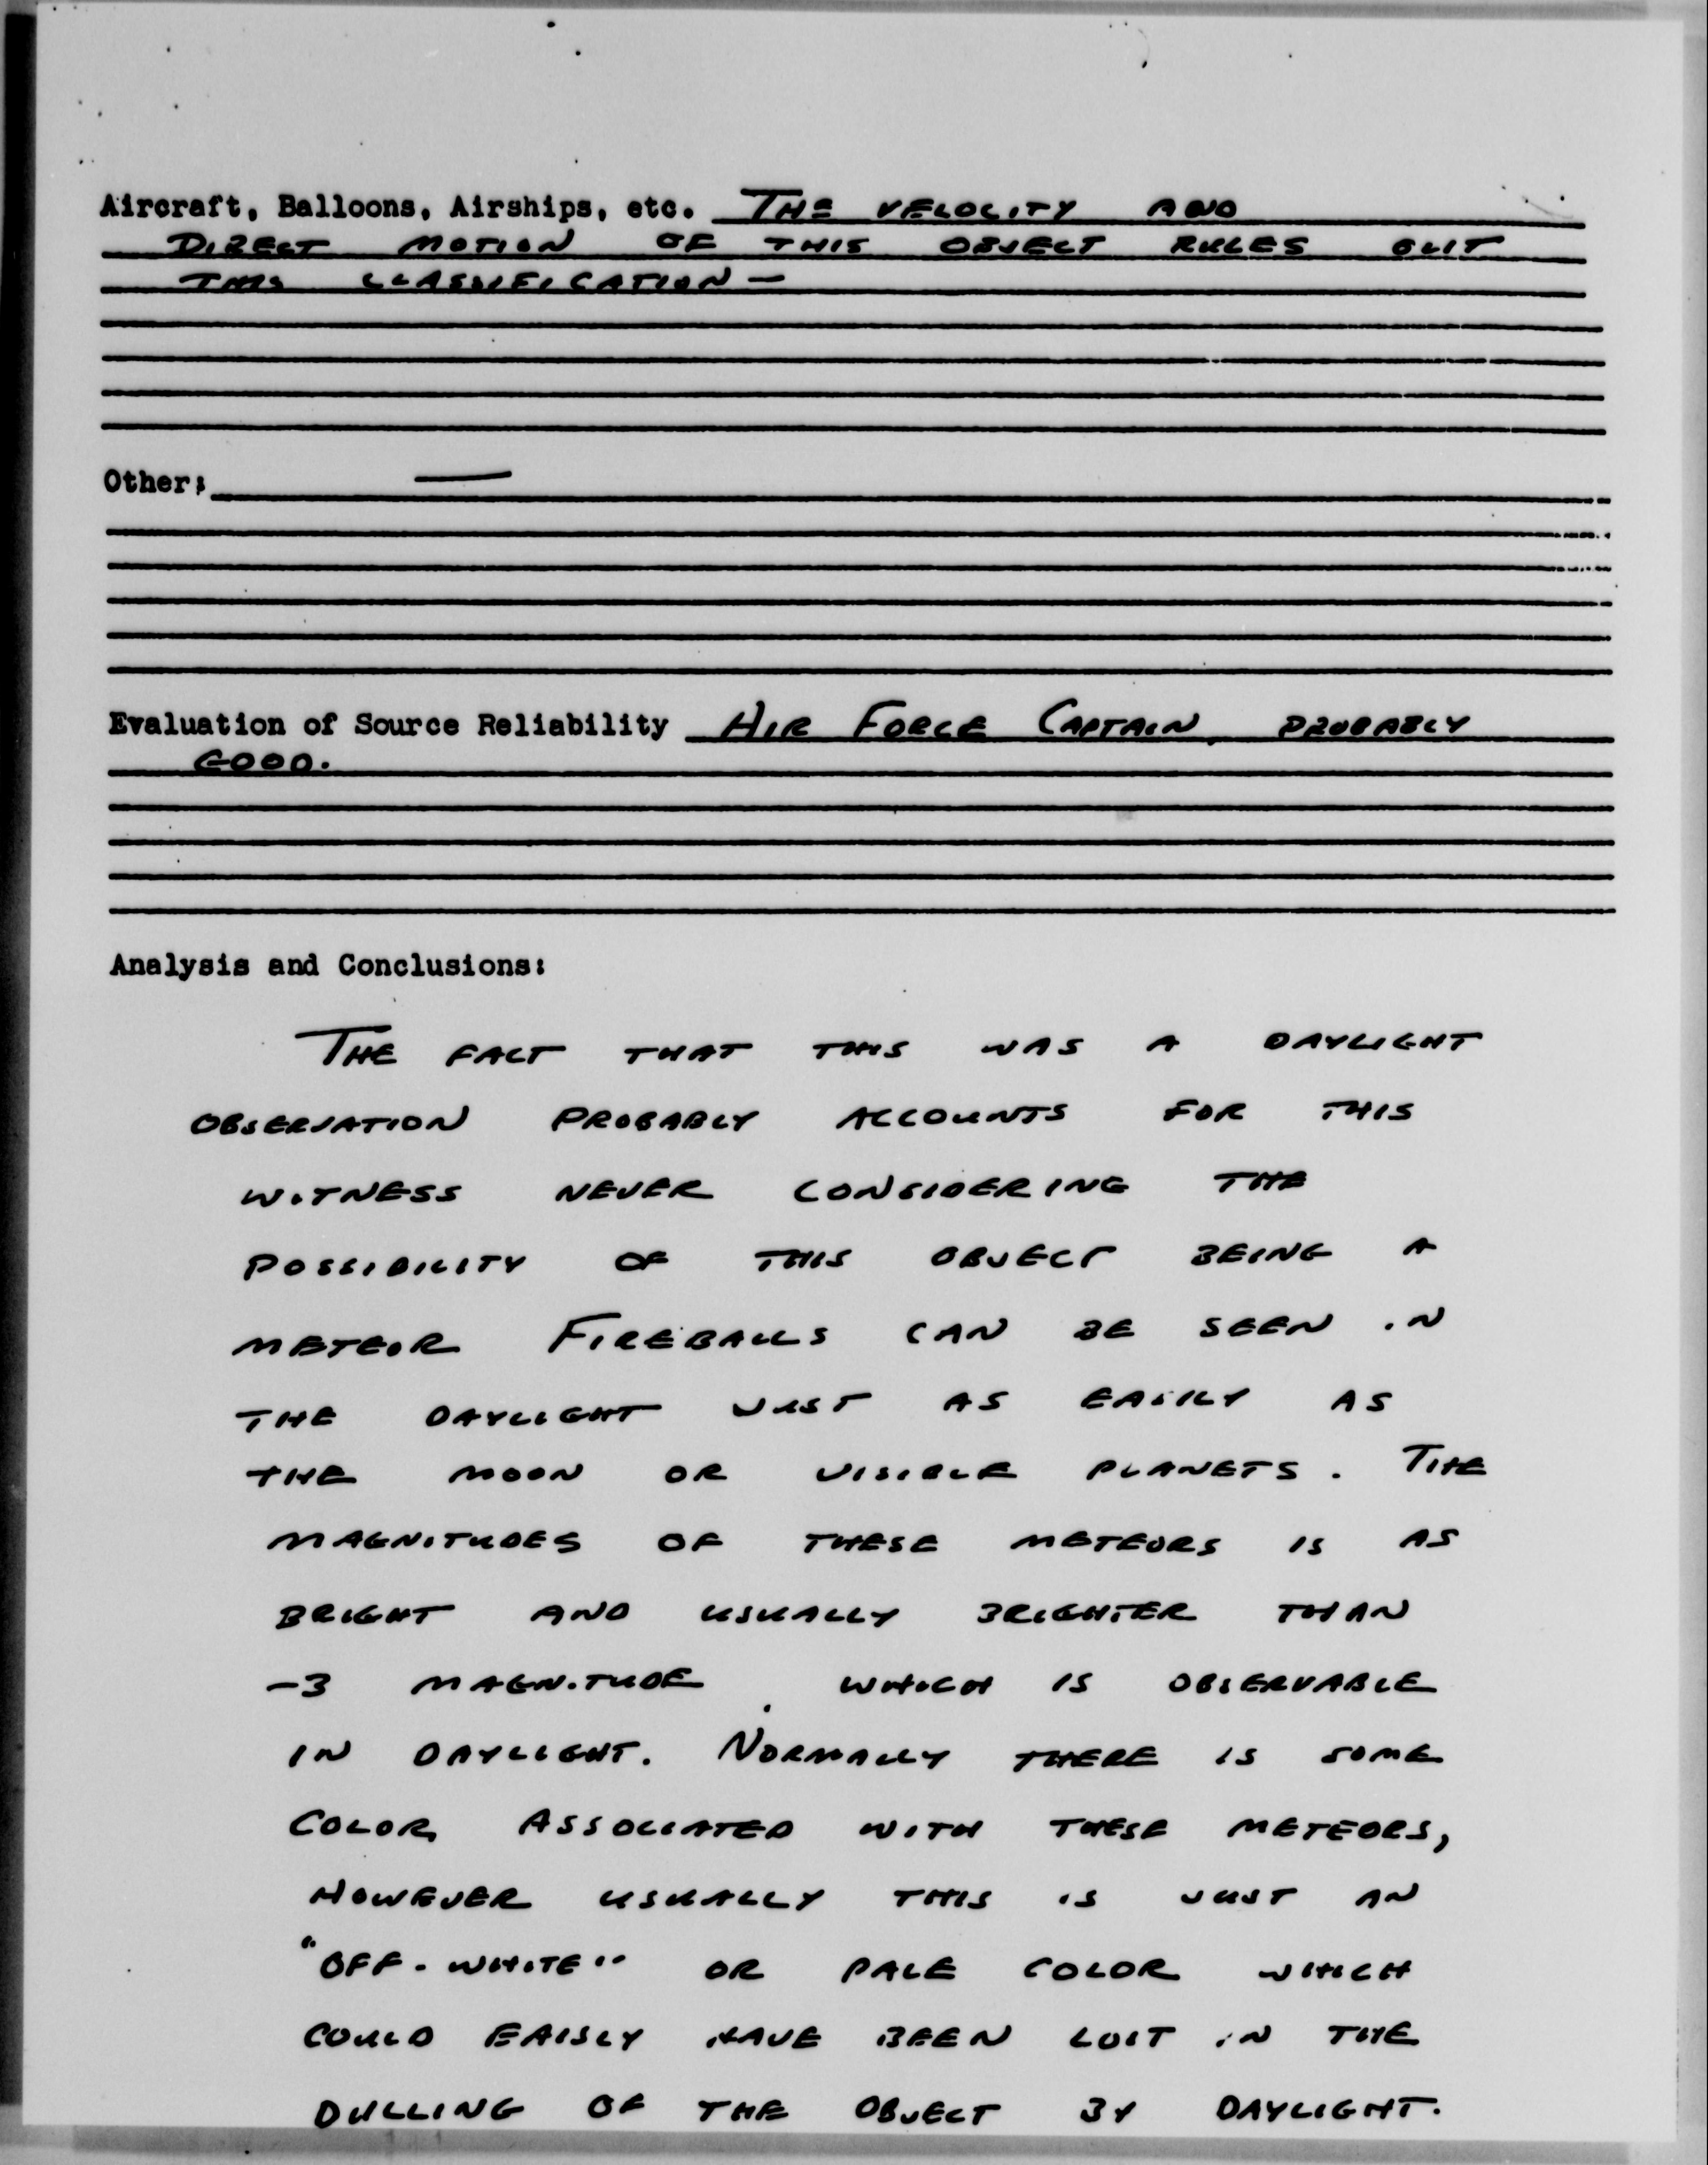 Aircraft, Balloons, Airships, etc. THE VELOCITY AND
DIRECT MOTION OF THIS OBJECT RULES OUT
THIS CLASSIFICATION —
Other: —
Evaluation of Source Reliability AIR FORCE CAPTAIN, PROBABLY
GOOD.
Analysis and Conclusions:
THE FACT THAT THIS WAS A DAYLIGHT
OBSERVATION PROBABLY ACCOUNTS FOR THIS
WITNESS NEVER CONSIDERING THE
POSSIBILITY OF THIS OBJECT BEING A
METEOR. FIREBALLS CAN BE SEEN IN
THE DAYLIGHT JUST AS EASILY AS
THE MOON OR VISIBLE PLANETS. THE
MAGNITUDES OF THESE METEORS IS AS
BRIGHT AND USUALLY BRIGHTER THAN
-3 MAGNITUDE, WHICH IS OBSERVABLE
IN DAYLIGHT. NORMALLY THERE IS SOME
COLOR ASSOCIATED WITH THESE METEORS,
HOWEVER USUALLY THIS IS JUST AN
"OFF-WHITE" OR PALE COLOR WHICH
COULD EAISLY HAVE BEEN LOST IN THE
DULLING OF THE OBJECT BY DAYLIGHT.